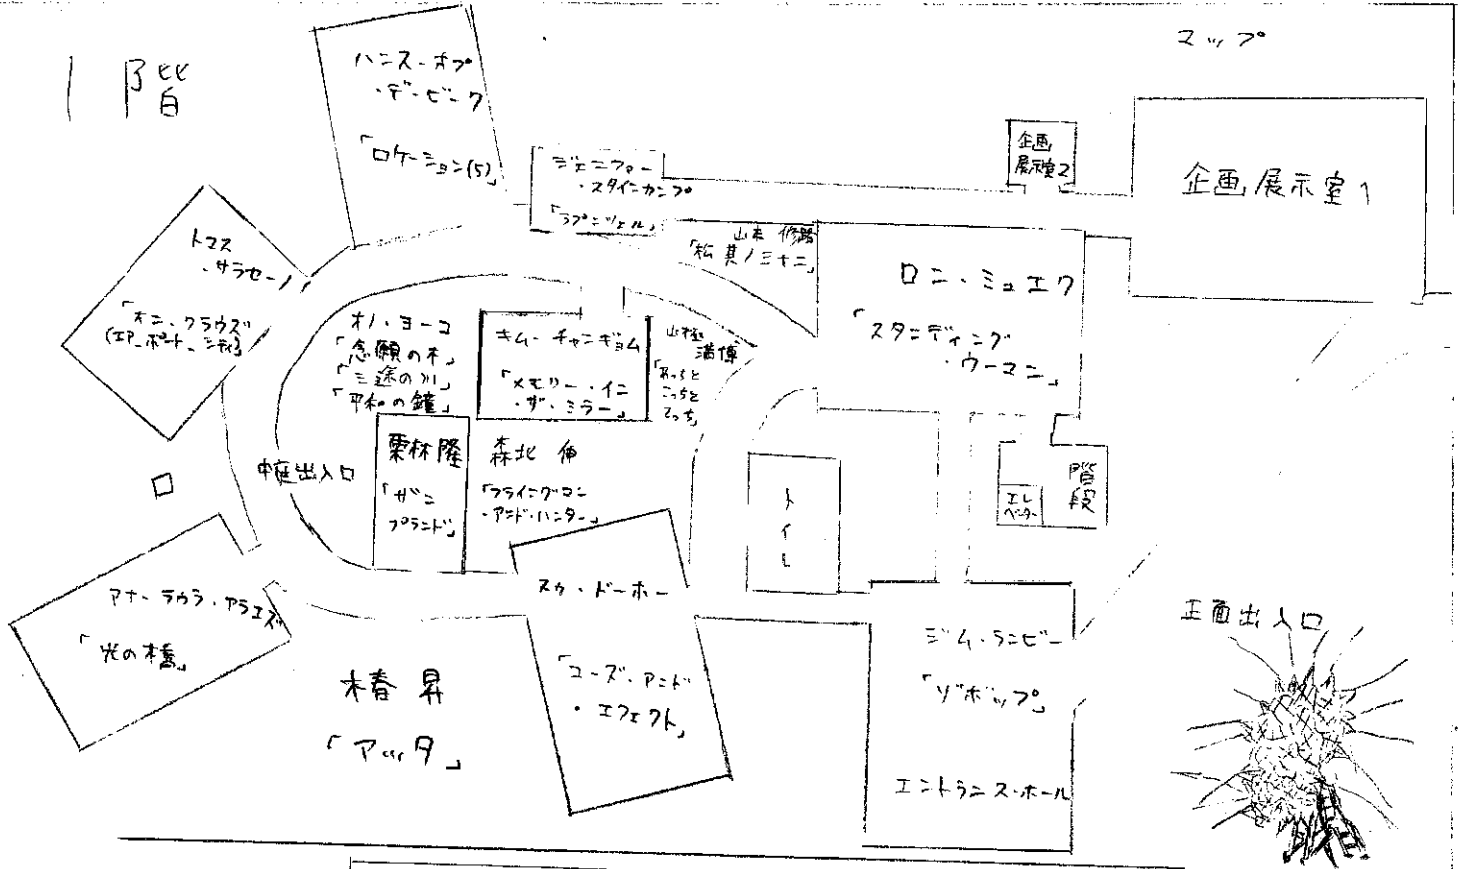 1階
マップ
ハンス・オプ
・デ・ビーク
「ロケーション(5)」
ジェニファー
・スタインカンプ
「ラプンツェル」
企画
展示室2
企画展示室1
トマス
・サラセーノ
「オン・クラウズ
(エア-ポート-シティ)」
山本 修路
「松 其ノ三十二」
ロン・ミュエク
「スタンディング
・ウーマン」
オノ・ヨーコ
「念願の木」
「三途の川」
「平和の鐘」
キム・チャンギョム
「メモリー・イン
・ザ・ミラー」
山極
満博
「あっちと
こっちと
どっち」
中庭出入口
栗林隆
「ザンプ
ランド」
森北 伸
「フライングマン
・アンド・ハンター」
トイレ
エレ
ベーター
階段
アナ・ラウラ・アラエズ
「光の橋」
椿 昇
「アッタ」
スゥ・ドーホー
「コーズ・アンド
・エフェクト」
ジム・ランビー
「ゾボップ」
エントランス・ホール
正面出入口